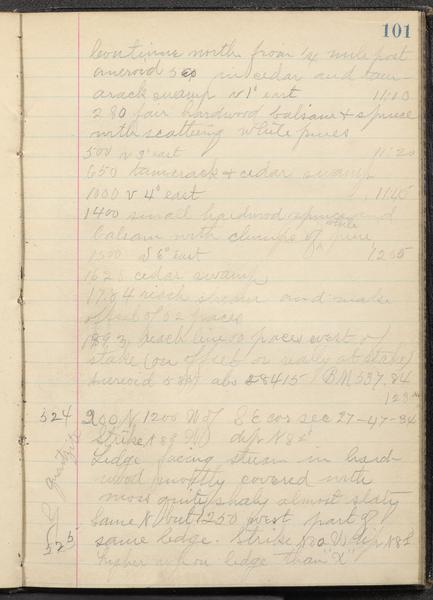 101
Continue north from 1/4 mile post
aneroid 580 in cedar and tam-
arack swamp v 1° east 11:10
280 fair hardwood balsam & spruce
with scattering white pines
500 v 3° east 11:20
650 tamarack & cedar swamp
1000 v 4° east 11:45
1400 small hardwood spruce and
balsam with clumps of white pine
1500 v 6° east 1205
1625 cedar swamp
1784 reach stream and make
offset of 52 paces
1893 reach line 10 paces west of
stake (on offset or really at stake)
aneroid abs BM 537.84
524 200 N 1200 W of S E cor sec 27-47-34
Strike N 83 W dip N 82°
Ledge facing stream in hard-
wood mostly covered with
moss quite shaly almost slaty
quartzite
Same N but 1250 west part of
525 same ledge. Strike N 80 W dip N 82
higher up on ledge than "X"